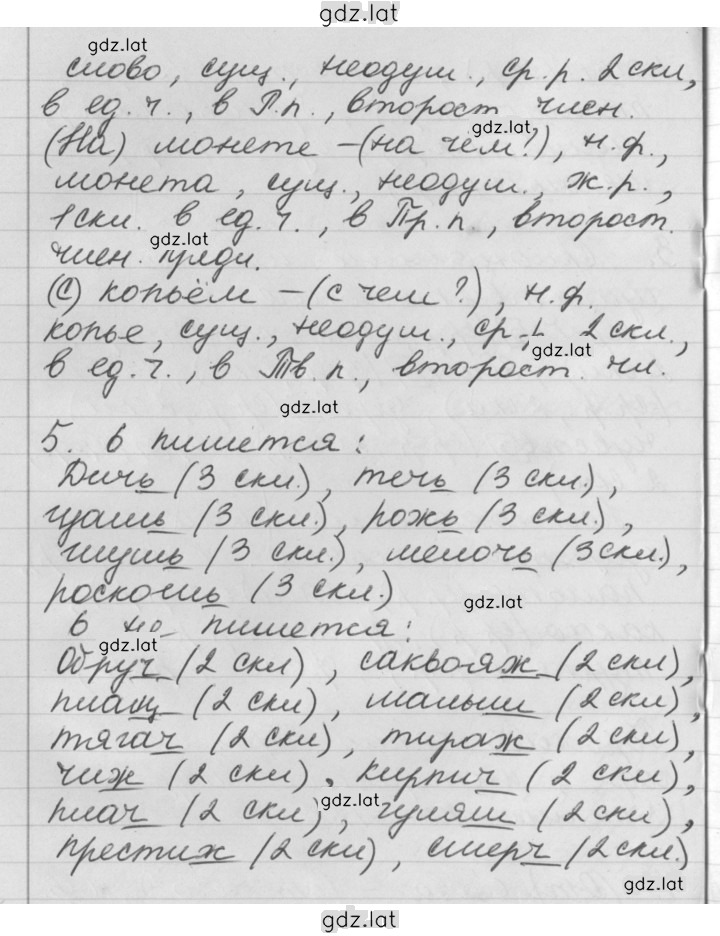 gdz.lat
gdz.lat
слово, сущ., неодуш., ср.р. 2 скл,
в ед.ч., в П.п., второст член.
gdz.lat
(На) монете – (на чем?), н.ф.,
монета, сущ., неодуш., ж.р.,
1 скл. в ед.ч., в Пр.п., второст.
gdz.lat
член. предл.
(С) копьём – (с чем?), н.ф.
копье, сущ., неодуш., ср. 2 скл.,
gdz.lat
в ед.ч., в Тв.п., второст. чл.
gdz.lat
5. ь пишется:
Дичь (3 скл.), течь (3 скл.),
гуашь (3 скл.), рожь (3 скл.),
глушь (3 скл.), мелочь (3 скл.),
роскошь (3 скл.)
gdz.lat
ь не пишется:
gdz.lat
Обруч (2 скл), саквояж (2 скл),
плащ (2 скл), малыш (2 скл),
тягач (2 скл), тираж (2 скл),
чиж (2 скл), кирпич (2 скл),
gdz.lat
плач (2 скл), гуляш (2 скл),
престиж (2 скл), смерч (2 скл.)
gdz.lat
gdz.lat